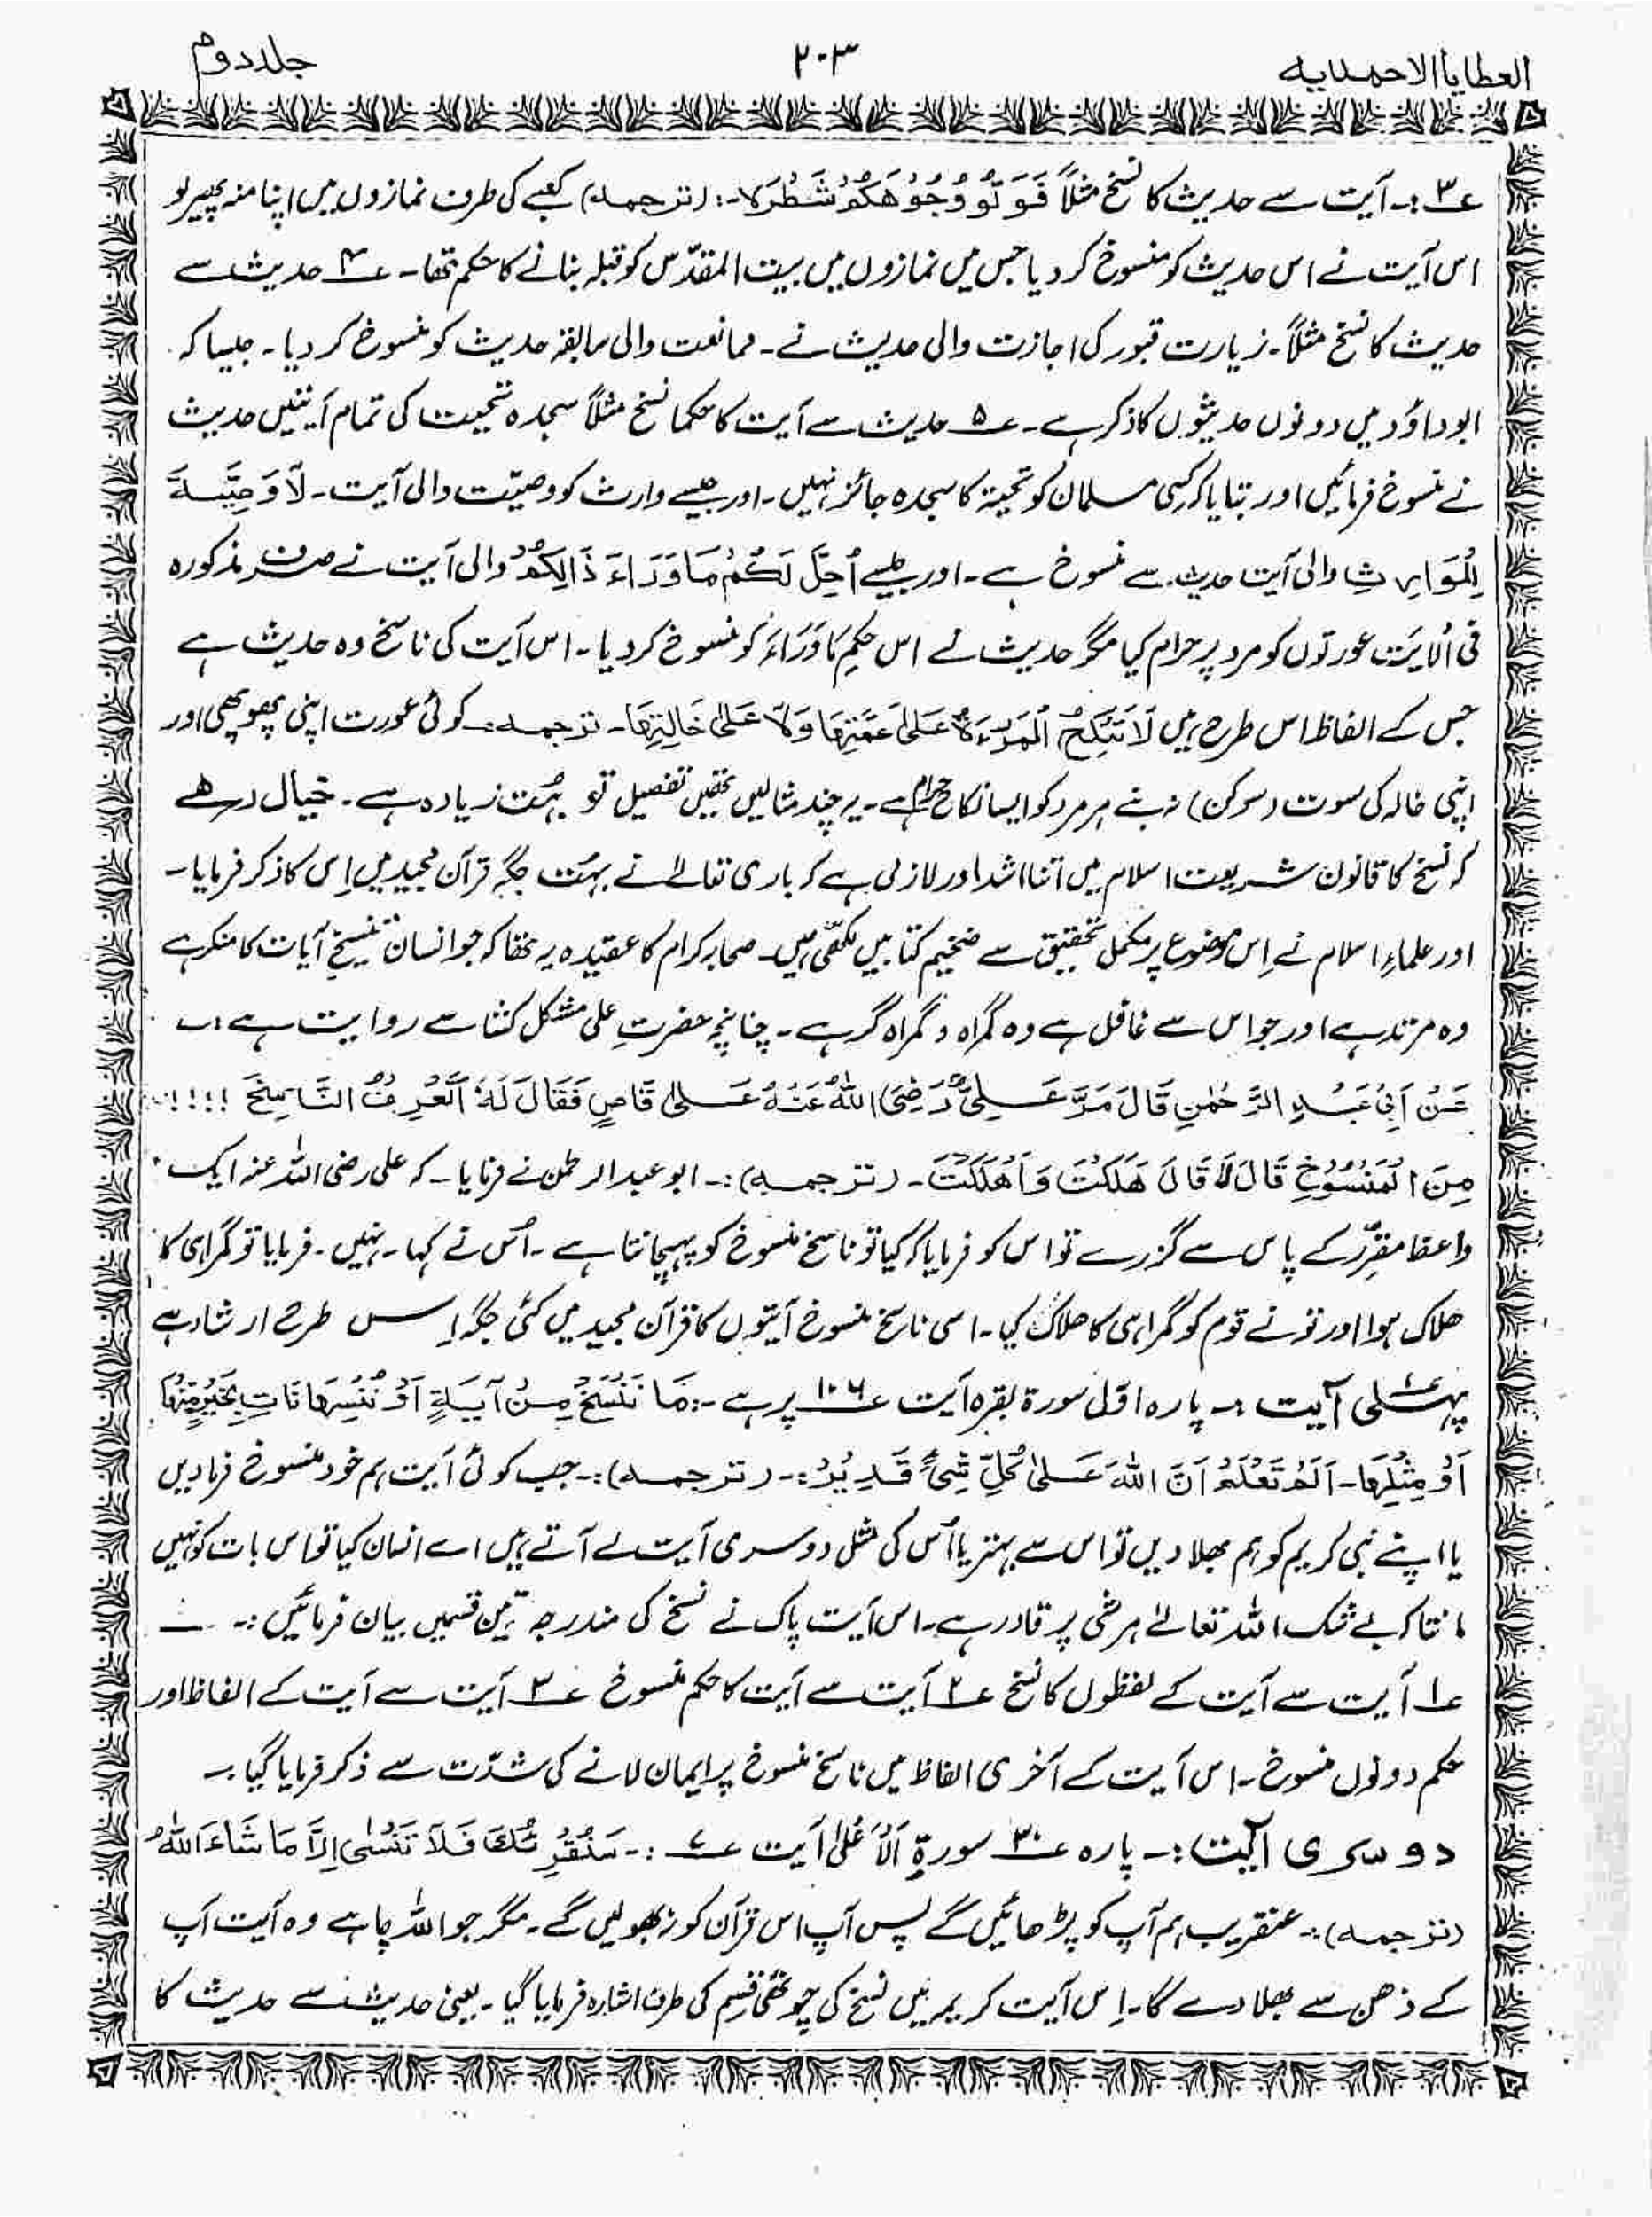 العطایا الاحمدیہ
۲۰۳
جلد دوم
ع۳ :۔ آیت سے حدیث کا نسخ مثلاً فَوَلُّوْ وُجُوْهَكُمْ شَطْرَہٗ :۔ (ترجمہ) کعبے کی طرف نمازوں میں اپنا منہ پھیر لو
اس آیت نے اس حدیث کو منسوخ کر دیا جس میں نمازوں میں بیت المقدّس کو قبلہ بنانے کا حکم تھا۔ ع۴ حدیث سے
حدیث کا نسخ مثلاً۔ زیارت قبور کی اجازت والی حدیث نے۔ ممانعت والی سابقہ حدیث کو منسوخ کر دیا۔ جیسا کہ
ابوداؤد میں دونوں حدیثوں کا ذکر ہے۔ ع۵ حدیث سے آیت کا حکماً نسخ مثلاً سجدہ تحیت کی تمام آیتیں حدیث
نے منسوخ فرمائیں اور بتایا کہ کسی مسلمان کو تحیۃ کا سجدہ جائز نہیں۔ اور جیسے وارث کو وصیّت والی آیت۔ لَا وَصِیَّةَ
لِلْوَارِثِ والی آیت حدیث سے منسوخ ہے۔ اور جیسے اُحِلَّ لَکُمْ مَا وَرَاءَ ذَالِکُمْ والی آیت نے صرف مذکورہ
فی الایت عورتوں کو مرد پر حرام کیا مگر حدیث نے اس حکمِ مَاوَرَاءَ کو منسوخ کر دیا۔ اس آیت کی ناسخ وہ حدیث ہے
جس کے الفاظ اس طرح ہیں لَا تُنْکَحُ الْمَرْءَۃُ عَلیٰ عَمَّتِهَا وَلَا عَلیٰ خَالَتِهَا۔ ترجمہ :۔ کوئی عورت اپنی پھوپھی اور
اپنی خالہ کی سوت (سوکن) نہ بنے ہر مرد کو ایسا نکاح حرام ہے۔ یہ چند مثالیں تھیں تفصیل تو بہت زیادہ ہے۔ خیال رہے
کہ نسخ کا قانون شریعت اسلام میں اتنا اشد اور لازمی ہے کہ باری تعالےٰ نے بہت جگہ قرآن مجید میں اِس کا ذکر فرمایا۔
اور علماءِ اسلام نے اِس موضوع پر مکمل تحقیق سے ضخیم کتابیں لکھی ہیں۔ صحابہ کرام کا عقیدہ یہ تھا کہ جو انسان تنسیخِ آیات کا منکر ہے
وہ مرتد ہے اور جو اس سے غافل ہے وہ گمراہ و گمراہ گر ہے۔ چنانچہ حضرتِ علی مشکل کشا سے روایت ہے :۔
عَنْ اَبِیْ عَبْدِ الرَّحْمٰنِ قَالَ مَرَّ عَلِیٌّ رَضِیَ اللّٰہُ عَنْہُ عَلیٰ قَاصٍ فَقَالَ لَہٗ اَتَعْرِفُ النَّاسِخَ !!!!
مِنَ الْمَنْسُوْخِ قَالَ لَا قَالَ هَلَكْتَ وَاَهْلَكْتَ۔ (ترجمہ) :۔ ابو عبدالرحمٰن نے فرمایا۔ کہ علی رضی اللہ عنہ ایک
واعظ مقرّر کے پاس سے گزرے تو اس کو فرمایا کہ کیا تو ناسخ منسوخ کو پہچانتا ہے۔ اُس نے کہا۔ نہیں۔ فرمایا تو گمراہی کا
ھلاک ہوا اور تو نے قوم کو گمراہی کا ھلاک کیا۔ اسی ناسخ منسوخ آیتوں کا قرآن مجید میں کئی جگہ اِس طرح ارشاد ہے
پہلی آیت :۔ پارہ اوّل سورۃ بقرہ آیت ع۱۰۶ پر ہے :۔ مَا نَنْسَخْ مِنْ آیَةٍ اَوْ نُنْسِهَا نَاتِ بِخَیْرٍ مِنْهَا
اَوْ مِثْلِهَا۔ اَلَمْ تَعْلَمْ اَنَّ اللّٰہَ عَلیٰ کُلِّ شَیْءٍ قَدِیْرٌ :۔ (ترجمہ) :۔ جب کوئی آیت ہم خود منسوخ فرما دیں
یا اپنے نبی کریم کو ہم بھلا دیں تو اس سے بہتر یا اُس کی مثل دوسری آیت لے آتے ہیں اے انسان کیا تو اس بات کو نہیں
مانتا کہ بے شک اللہ تعالےٰ ہر شی پر قادر ہے۔ اس آیت پاک نے نسخ کی مندرجہ تین قسمیں بیان فرمائیں :۔
ع۱ آیت سے آیت کے لفظوں کا نسخ ع۲ آیت سے آیت کا حکم منسوخ ع۳ آیت سے آیت کے الفاظ اور
حکم دونوں منسوخ۔ اس آیت کے آخری الفاظ میں ناسخ منسوخ پر ایمان لانے کی شدّت سے ذکر فرمایا گیا :۔
دوسری آیت :۔ پارہ ع۳۰ سورۃ اَلْاَعْلیٰ آیت ع۷ :۔ سَنُقْرِئُكَ فَلَا تَنْسٰی اِلَّا مَا شَاءَ اللّٰہُ
(ترجمہ) :۔ عنقریب ہم آپ کو پڑھائیں گے پس آپ اس قرآن کو نہ بھولیں گے۔ مگر جو اللہ چاہے وہ آیت آپ
کے ذھن سے بھلا دے گا۔ اِس آیت کریمہ میں نسخ کی چوتھی قسم کی طرف اشارہ فرمایا گیا۔ یعنی حدیث سے حدیث کا